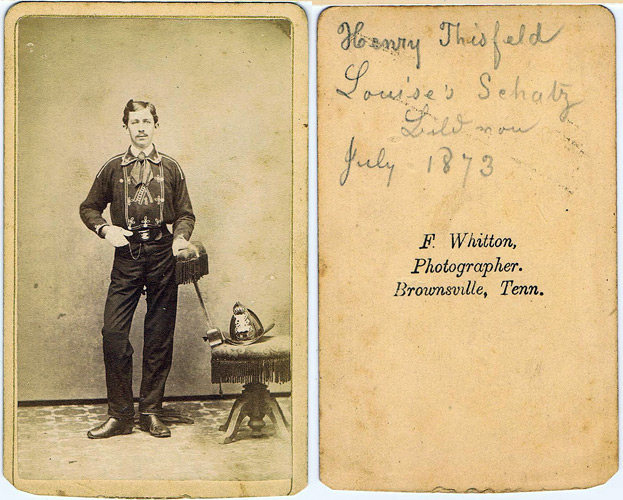 Henry Thisfeld
Louise's Schatz
July 1873
F. Whitton,
Photographer.
Brownsville, Tenn.